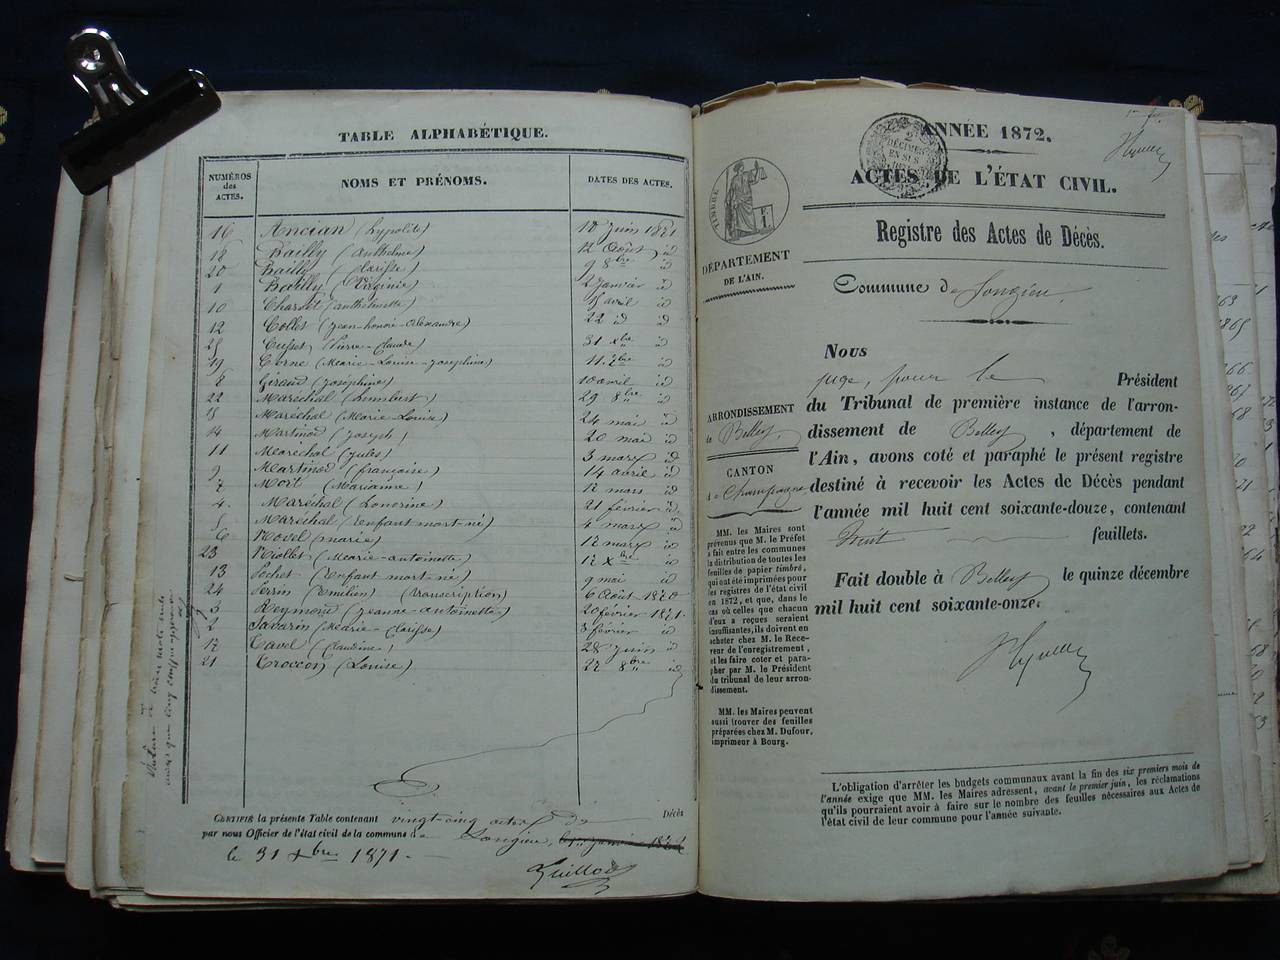 TABLE ALPHABÉTIQUE.
NUMÉROS des ACTES. NOMS ET PRÉNOMS. DATES DES ACTES.
16 Ancian (hypolite) 18 Juin 1871
18 Bailly (Anthelme) 12 Août id
20 Bailly (Clarisse) 9 8bre id
1 Bailly (Virginie) 2 Janvier id
10 Charvet (anthelmette) avril id
12 Collet (Jean-honoré-Alexandre) 22 id id
25 Cusset (Pierre-Claude) 31 xbre id
19 Corne (Marie-Louise-Josephine) 11 7bre id
8 Giraud (Joséphine) 10 avril id
22 Maréchal (humbert) 29 8bre id
Maréchal (Marie-Louise) 24 mai id
14 Martinod (Joseph) 20 mai id
11 Maréchal (Jules) 3 marx id
9 Martinod (françoise) 14 avril id
7 Mort (Marianne) 12 mars id
4 Maréchal (Léonine) 21 février id
5 Maréchal (enfant mort-né) 4 marx id
6 Novel (marie) 12 marx id
23 Niollet (Marie-antoinette) 12 Xbre id
13 Pochet (Enfant mort-né) 9 mai id
24 Perrin (Emilien) (transcription) 6 Août 1870
3 Reymond (jeanne-antoinette) 20 février 1871
2 Savarin (Marie-Clarisse) 3 février id
17 Tavel (Claudine) 28 Juin id
21 Troccon (Louise) 22 8bre id
CERTIFIÉ la présente Table contenant vingt-cinq actes de Décès
par nous Officier de l'état civil de la commune de Songieu,
le 31 xbre 1871.
Guillod
ANNÉE 1872.
2 DÉCIMES EN SUS
ACTES DE L'ÉTAT CIVIL.
TIMBRE
F. 1
Registre des Actes de Décès.
DÉPARTEMENT
DE L'AIN.
Commune de Songieu
Nous
juge, pour le Président
du Tribunal de première instance de l'arron-
dissement de Belley, département de
l'Ain, avons coté et paraphé le présent registre
destiné à recevoir les Actes de Décès pendant
l'année mil huit cent soixante-douze, contenant
huit feuillets.
Fait double à Belley le quinze décembre
mil huit cent soixante-onze.
ARRONDISSEMENT
de Belley
CANTON
de Champagne
MM. les Maires sont
prévenus que M. le Préfet
a fait entre les communes
la distribution de toutes les
feuilles de papier timbré,
qui ont été imprimées pour
les registres de l'état civil
en 1872, et que, dans le
cas où celles que chacun
d'eux a reçues seraient
insuffisantes, ils doivent en
acheter chez M. le Rece-
veur de l'enregistrement,
et les faire coter et para-
pher par M. le Président
du tribunal de leur arron-
dissement.
MM. les Maires peuvent
aussi trouver des feuilles
préparées chez M. Dufour,
imprimeur à Bourg.
L'obligation d'arrêter les budgets communaux avant la fin des six premiers mois de
l'année exige que MM. les Maires adressent, avant le premier juin, les réclamations
qu'ils pourraient avoir à faire sur le nombre des feuilles nécessaires aux Actes de
l'état civil de leur commune pour l'année suivante.